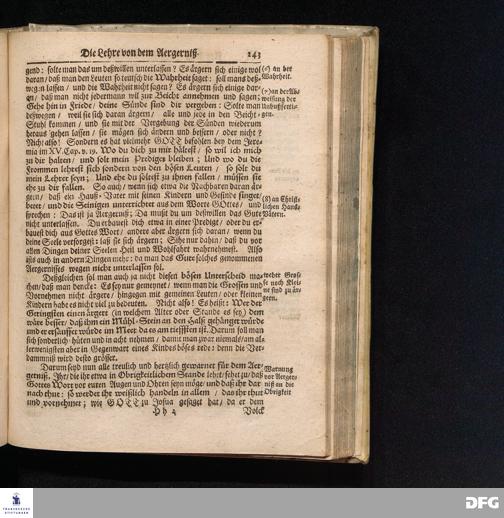 Die Lehre von dem Aergerniß. 143
gend: solte man das um deßwillen unterlassen? Es ärgern sich einige wol
daran/ daß man den Leuten so teutsch die Wahrheit saget: soll mans deß-
wegen lassen/ und die Wahrheit nicht sagen? Es ärgern sich einige dar-
an/ daß man nicht jederman will zur Beicht annehmen und sagen;
Gehe hin in Friede/ deine Sünde sind dir vergeben: Solte man
deßwegen/ weil sie sich daran ärgern/ alle und jede in den Beicht-
Stuhl kommen/ und sie mit der Vergebung der Sünden wiederum
heraus gehen lassen/ sie mögen sich ändern und bessern/ oder nicht?
Nicht also! Sondern es hat vielmehr GOTT befohlen bey dem Jere-
mia im XV. Cap. v. 19. Wo du dich zu mir hältest/ so will ich mich
zu dir halten/ und solt mein Prediger bleiben; Und wo du die
Frommen lehrest sich sondern von den bösen Leuten/ so solt du
mein Lehrer seyn; Und ehe du soltest zu ihnen fallen/ müssen sie
ehe zu dir fallen. So auch/ wenn sich etwa die Nachbaren daran är-
gern/ daß ein Hauß-Vater mit seinen Kindern und Gesinde singet/
betet/ und die Seinigen unterrichtet aus dem Worte GOttes/ und
sprechen: Das ist ja Aergerniß; Da must du um deßwillen das Gute
nicht unterlassen. Du erbauest dich etwa in einer Predigt/ oder du er-
bauest dich aus Gottes Wort/ andere aber ärgern sich daran/ wenn du
deine Seele versorgest: laß sie sich ärgern; Sihe nur dahin/ daß du vor
allen Dingen deiner Seelen Heil und Wohlfahrt wahrnehmest. Also
ists auch in andern Dingen mehr: da man das Gute solches genommenen
Aergernisses wegen nicht unterlassen sol.
Deßgleichen sol man auch ja nicht diesen bösen Unterscheid ma-
chen/ daß man dencke: Es sey nur gemeynet/ wenn man die Grossen und
Vornehmen nicht ärgere/ hingegen mit gemeinen Leuten/ oder kleinen
Kindern habe es nicht viel zu bedeuten. Nicht also! Es heist: Wer der
Geringsten einen ärgere (in welchem Alter oder Stande es sey) dem
wäre besser/ daß ihm ein Mühl-Stein an den Halß gehänget würde
und er ersäuffet würde im Meer da es am tieffsten ist. Darum soll man
sich sonderlich hüten und in acht nehmen/ damit man zwar niemals/ am al-
lerwenigsten aber in Gegenwart eines Kindes böses rede: denn die Ver-
dammniß wird desto grösser.
Darum seyd nun alle treulich und herzlich gewarnet für dem Aer-
gerniß. Ihr/ die ihr etwa in Obrigkeitlichem Stande lebet/ sehet zu/ daß
Gottes Wort vor euren Augen und Ohren seyn möge/ und daß ihr dar-
nach thut: so werdet ihr weißlich handeln in allem/ das ihr thut
und vornehmet; wie GOTT zu Josua gesaget hat/ da er dem
Volck
an der
Wahrheit.
an der Ab-
weisung der
unbußferti-
gen.
(8) an Christ-
lichen Hauß-
Vätern.
weder Gros-
se noch Klei-
ne sind zu är-
gern.
Warnung
vor Aerger-
niß an die
Obrigkeit
FRANCKESCHE
STIFTUNGEN
DFG